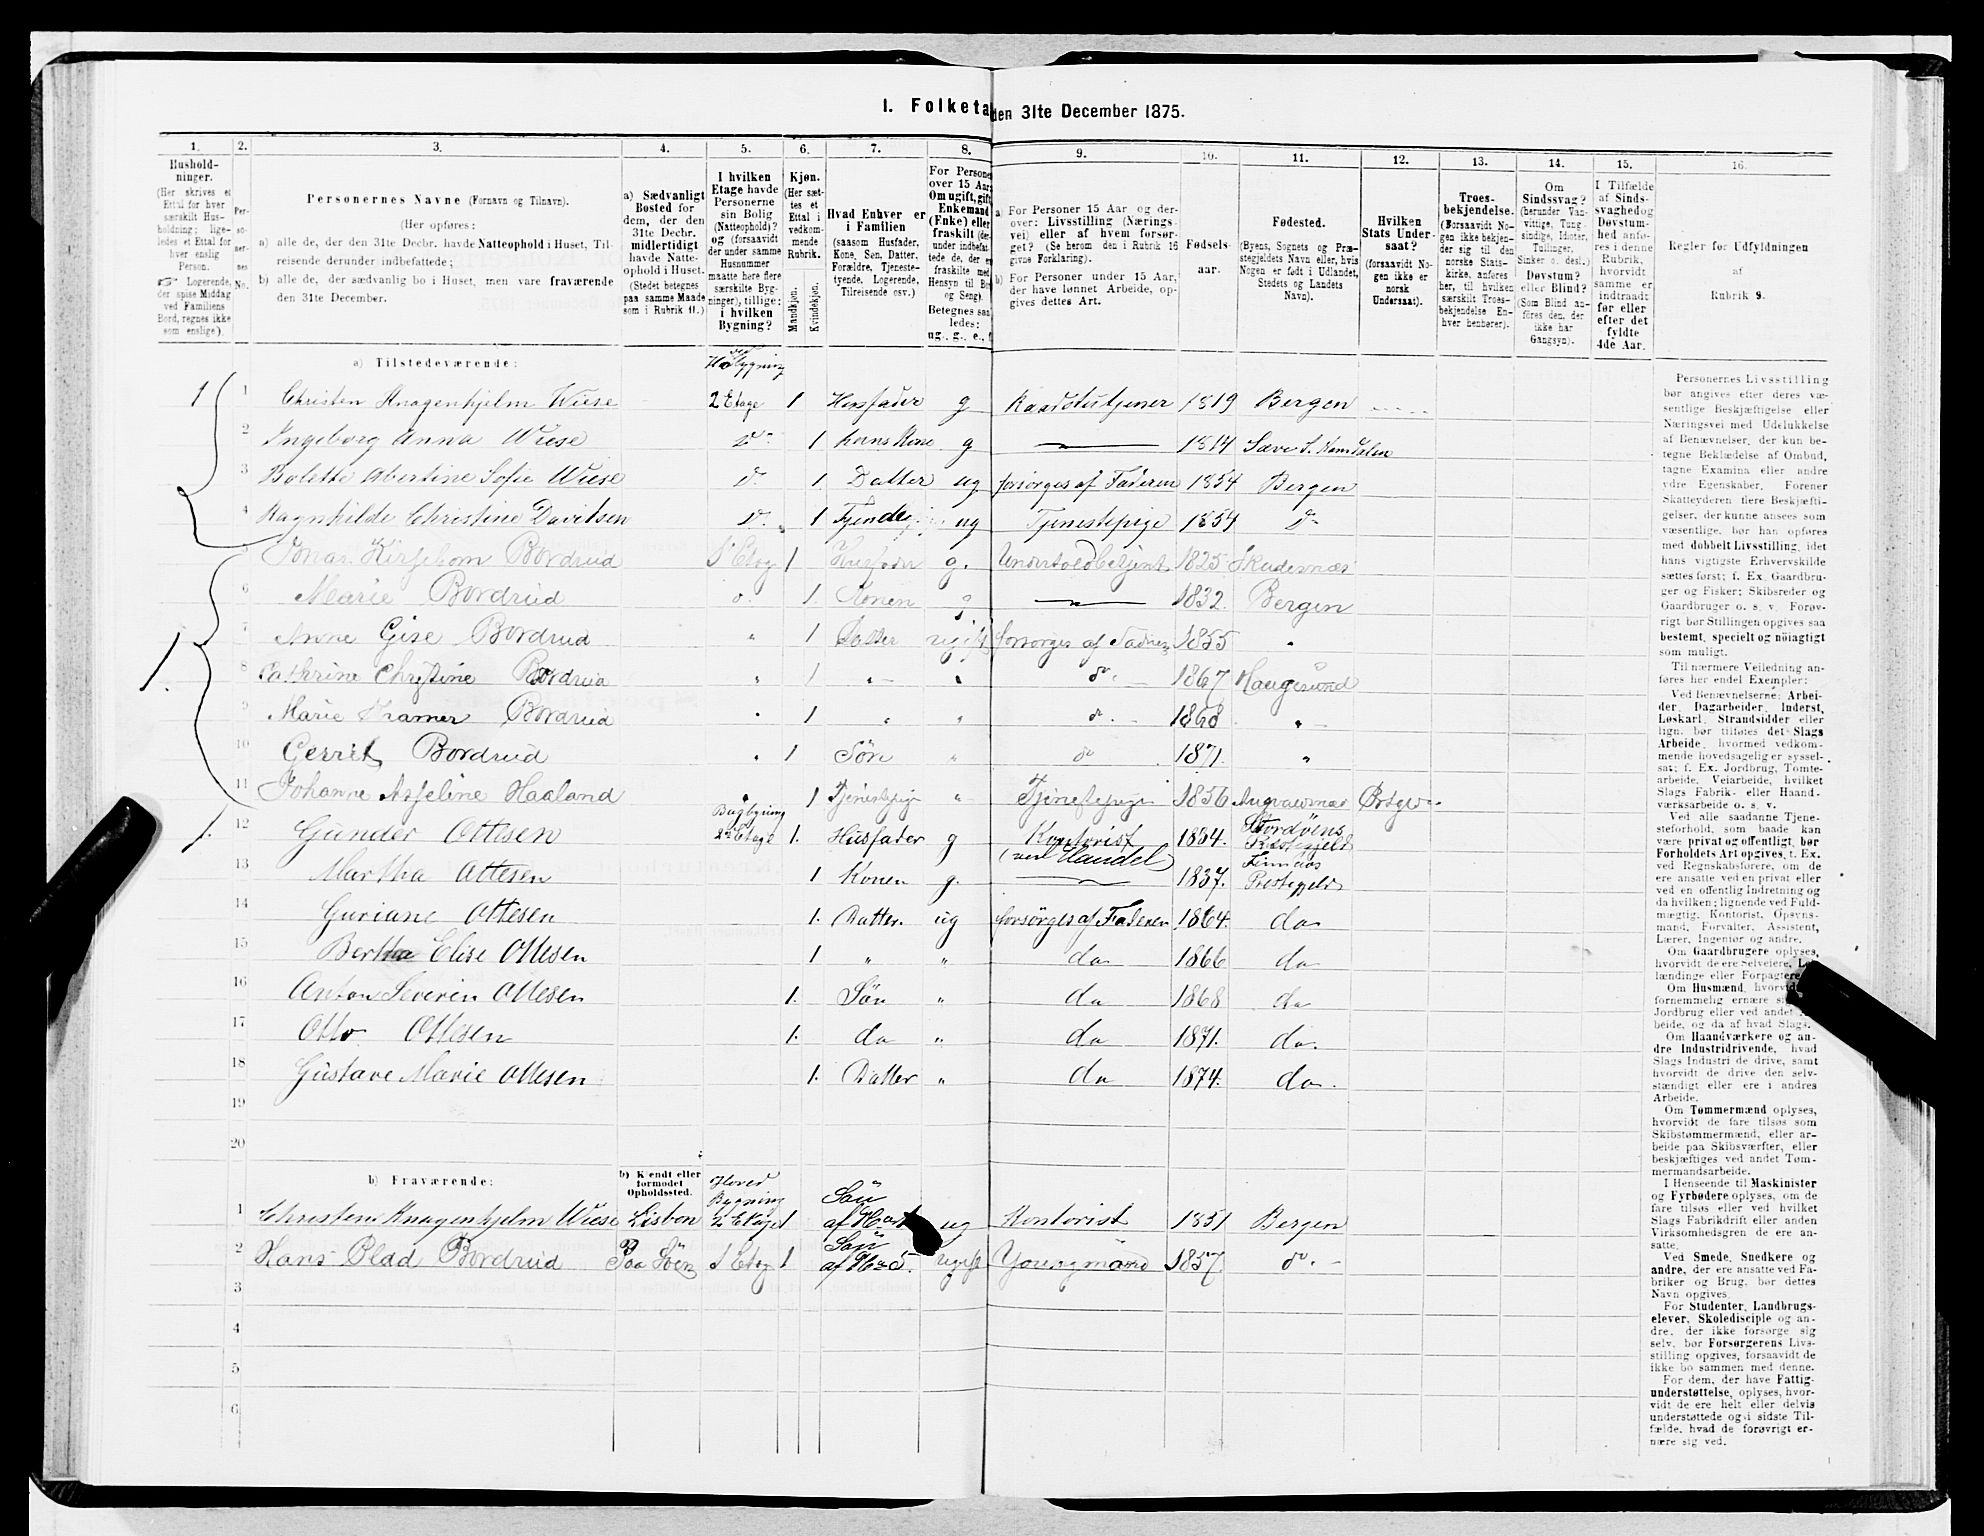 I. Folketa den 31te December 1875.
1. 2. 3. 4. 5. 6. 7. 8. 9. 10. 11. 12. 13. 14. 15. 16.
Hushold-
ninger.
(Her skrives et
Ettal for hver
særskilt Hus-
holdning; lige-
ledes et Ettal for
hver enslig
Person.
☞ Logerende,
der spise Middag
ved Familiens
Bord, regnes ikke
som enslige).
Per-
so-
ner-
nes
No.
Personernes Navne (Fornavn og Tilnavn).
(Her opføres:
a) alle de, der den 31te Decbr. havde Natteophold i Huset, Til-
reisende derunder indbefattede;
b) alle de, der sædvanlig bo i Huset, men vare fraværende
den 31te December.
a) Sædvanligt
Bosted for
dem, der den
31te Decbr.
midlertidigt
havde Natte-
ophold i Huset.
(Stedet betegnes
paa samme Maade
som i Rubrik 11.)
I hvilken
Etage havde
Personerne
sin Bolig
(Natteophold)?
og (forsaavidt
der under samme
Husnummer
maatte høre flere
særskilte Byg-
ninger), tillige:
i hvilken
Bygning?
Kjøn.
(Her sæt-
tes et
Ettal i
vedkom-
mende
Rubrik.
Mandkjøn.
Kvindekjøn.
Hvad Enhver er
i Familien
(saasom Husfader,
Kone, Søn, Datter,
Forældre, Tjeneste-
tyende, Logerende,
Tilreisende osv.)
For Persone
over 15 Aar:
Om ugift, gift
Enkemand
(Enke) eller
fraskilt (der-
under indbefat-
tede de, der e
fraskilte med
Hensyn til Bo
og Seng).
Betegnes saa
ledes:
ug., g., e., f
a) For Personer 15 Aar og der-
over: Livsstilling (Nærings
vei) eller af hvem forsør-
get? (Se herom den i Rubrik 16
givne Forklaring).
b) For Personer under 15 Aar,
der have lønnet Arbeide, op-
gives dettes Art.
Fødsels-
aar.
Fødested.
(Byens, Sognets og Præ-
stegjeldets Navn eller, hvis
Nogen er født i Udlandet,
Stedets og Landets
Navn).
Hvilken
Stats Under-
saat?
(forsaavidt No-
gen ikke er
norsk
Undersaat).
Troes-
bekjendelse.
(Forsaavidt No-
gen ikke bekjen-
der sig til den
norske Stats-
kirke, anføres
her, til hvilken
særskilt Troes-
bekjendelse En-
hver henhører).
Om
Sindssvag?
(herunder Van-
vittige, Tung-
sindige, Idioter,
Tullinger,
Sinker o. desl.)
Døvstum?
eller Blind?
(Som Blind an-
føres den, der
ikke har
Gangsyn).
I Tilfælde
af Sinds-
svaghed og
Døvstum-
hed anfø-
res i denne
Rubrik,
hvorvidt
samme er
indtraadt
før eller
efter det
fyldte
4de Aar.
Regler for Udfyldningen
af
Rubrik 9.
a) Tilstedeværende:
1 1 Christen Knagenhjelm Wiese 2 Etage 1 Husfader g 1819 Bergen
2 Ingeborg Anna Wiese D 1 hans Kone g 1814
3 Bolette Abertine Sofie Wiese D 1 Datter ug. forsørges af Faderen 1854 Bergen
4 Ragnhilde Christine Davitsen D. 1 ug Tjenestepige 1854 D
5 Bordrud 1 Etag 1 Husfader g. 1825 Skudesnæs
6 Marie Bordrud 1. Konen g 1832. Bergen
1. 7 Anne Gise Bordrud " 1 Datter ugift 1855 "
8 Cathrine Christine Bordrud " 1 " " do 1867 Haugesund
9 Marie Kramer Bordrud " 1 " " do. 1868 "
10 Gerrit Bordrud " 1 Søn " do 1871. "
11 Johanne Asseline Haaland " 1 Tjenestepige " Tjenestepige 1856
Bagbygning
1. 12 Gunder Ottesen 2n Etage 1. Husfader g Kontorist (ved Handel) 1834. Stordøens Præstegjeld
13 Martha Ottesen 1 Konen g. 1837. Finnaas Prestegjeld
14 Guriane Ottesen 1. Datter. ug forsörges af Faderen 1864. do
15 Bertha Elise Ottesen 1 " " do 1866 do
16 Anton Severin Ottesen 1. Sön " do 1868 do
17 Otto Ottesen 1. do " do 1871. do.
18 Gustave Marie Ottesen 1. Datter " do 1874. do.
19
20
b) Fraværende: b) Kjendt eller
formodet
Opholdssted.
Hoved
Bygning
1 Christen Knagenhjelm Wiese Lisbon 2 Etage 1 Søn ug Kontorist 1851 Bergen
2 Hans Blad Bordrud Paa Söen 1 Etag 1 Søn af No 5. ugift Youngmand 1857. do.
3
4
5
6
Personernes Livsstilling
bør angives efter deres væ-
sentlige Beskjæftigelse eller
Næringsvei med Udelukkelse
af Benævnelser, der kun be-
tegne Beklædelse af Ombud,
tagne Examina eller andre
ydre Egenskaber. Forener
Skatteyderen flere Beskjæfti-
gelser, der kunne ansees som
væsentlige, bør han opføres
med dobbelt Livsstilling, idet
hans vigtigste Erhvervskilde
sættes først; f. Ex. Gaardbru-
ger og Fisker; Skibsreder og
Gaardbruger o. s. v. Forøv-
rigt bør Stillingen opgives saa
bestemt, specielt og nöiagtigt
som muligt.
Til nærmere Veiledning an-
føres her endel Exempler:
Ved Benævnelserne: Arbei-
der, Dagarbeider, Inderst,
Løskarl, Strandsidder eller
lign. bør tilføies det Slags
Arbeide, hvormed vedkom-
mende hovedsagelig er syssel-
sat; f. Ex. Jordbrug, Tomte-
arbeide, Veiarbeide, hvilket
Slags Fabrik- eller Haand-
værksarbeide o. s. v.
Ved alle saadanne Tjene-
steforhold, som baade kan
være privat og offentlig, bør
Forholdets Art opgives, t. Ex.
ved Regnskabsførere, om de
ere ansatte ved en privat eller
ved en offentlig Indretning og
da hvilken; lignende ved Fuld-
mægtig, Kontorist, Opsyns-
mand, Forvalter, Assistent,
Lærer, Ingeniør og andre.
Om Gaardbrugere oplyses,
hvorvidt de ere Selveiere, Le
lændinge eller Forpagtere.
Om Husmænd, hvorvid
fornemmelig ernære si
Jordbrug eller ved andet A
beide, og da af hvad Slags.
Om Haandværkere og an-
dre Industridrivende, hvad
Slags Industri de drive, samt
hvorvidt de drive den selv-
stændigt eller ere i andres
Arbeide.
Om Tømmermænd oplyses,
hvorvidt de fare tilsøs som
Skibstømmermænd, eller ar-
beide paa Skibsværfter, eller
beskjæftiges ved andet Tøm-
mermandsarbeide.
I Henseende til Maskinister
og Fyrbødere oplyses, om de
fare tilsøs eller ved hvilket
Slags Fabrikdrift eller anden
Virksomhedsgren de ere an-
satte.
Ved Smede, Snedkere og
andre, der ere ansatte ved Fa-
briker og Brug, bør dettes
Navn opgives.
For Studenter, Landbrugs-
elever, Skoledisciple og an-
dre, der ikke forsørge sig
selv, bør Forsørgerens Livs-
stilling opgives, forsaavidt de
ikke bo sammen med denne.
For dem, der have Fattig-
understøttelse, oplyses, hvor-
vidt de ere helt eller delvis
understøttede og i sidste Til-
fælde, hvad de forøvrigt er-
nære sig ved.